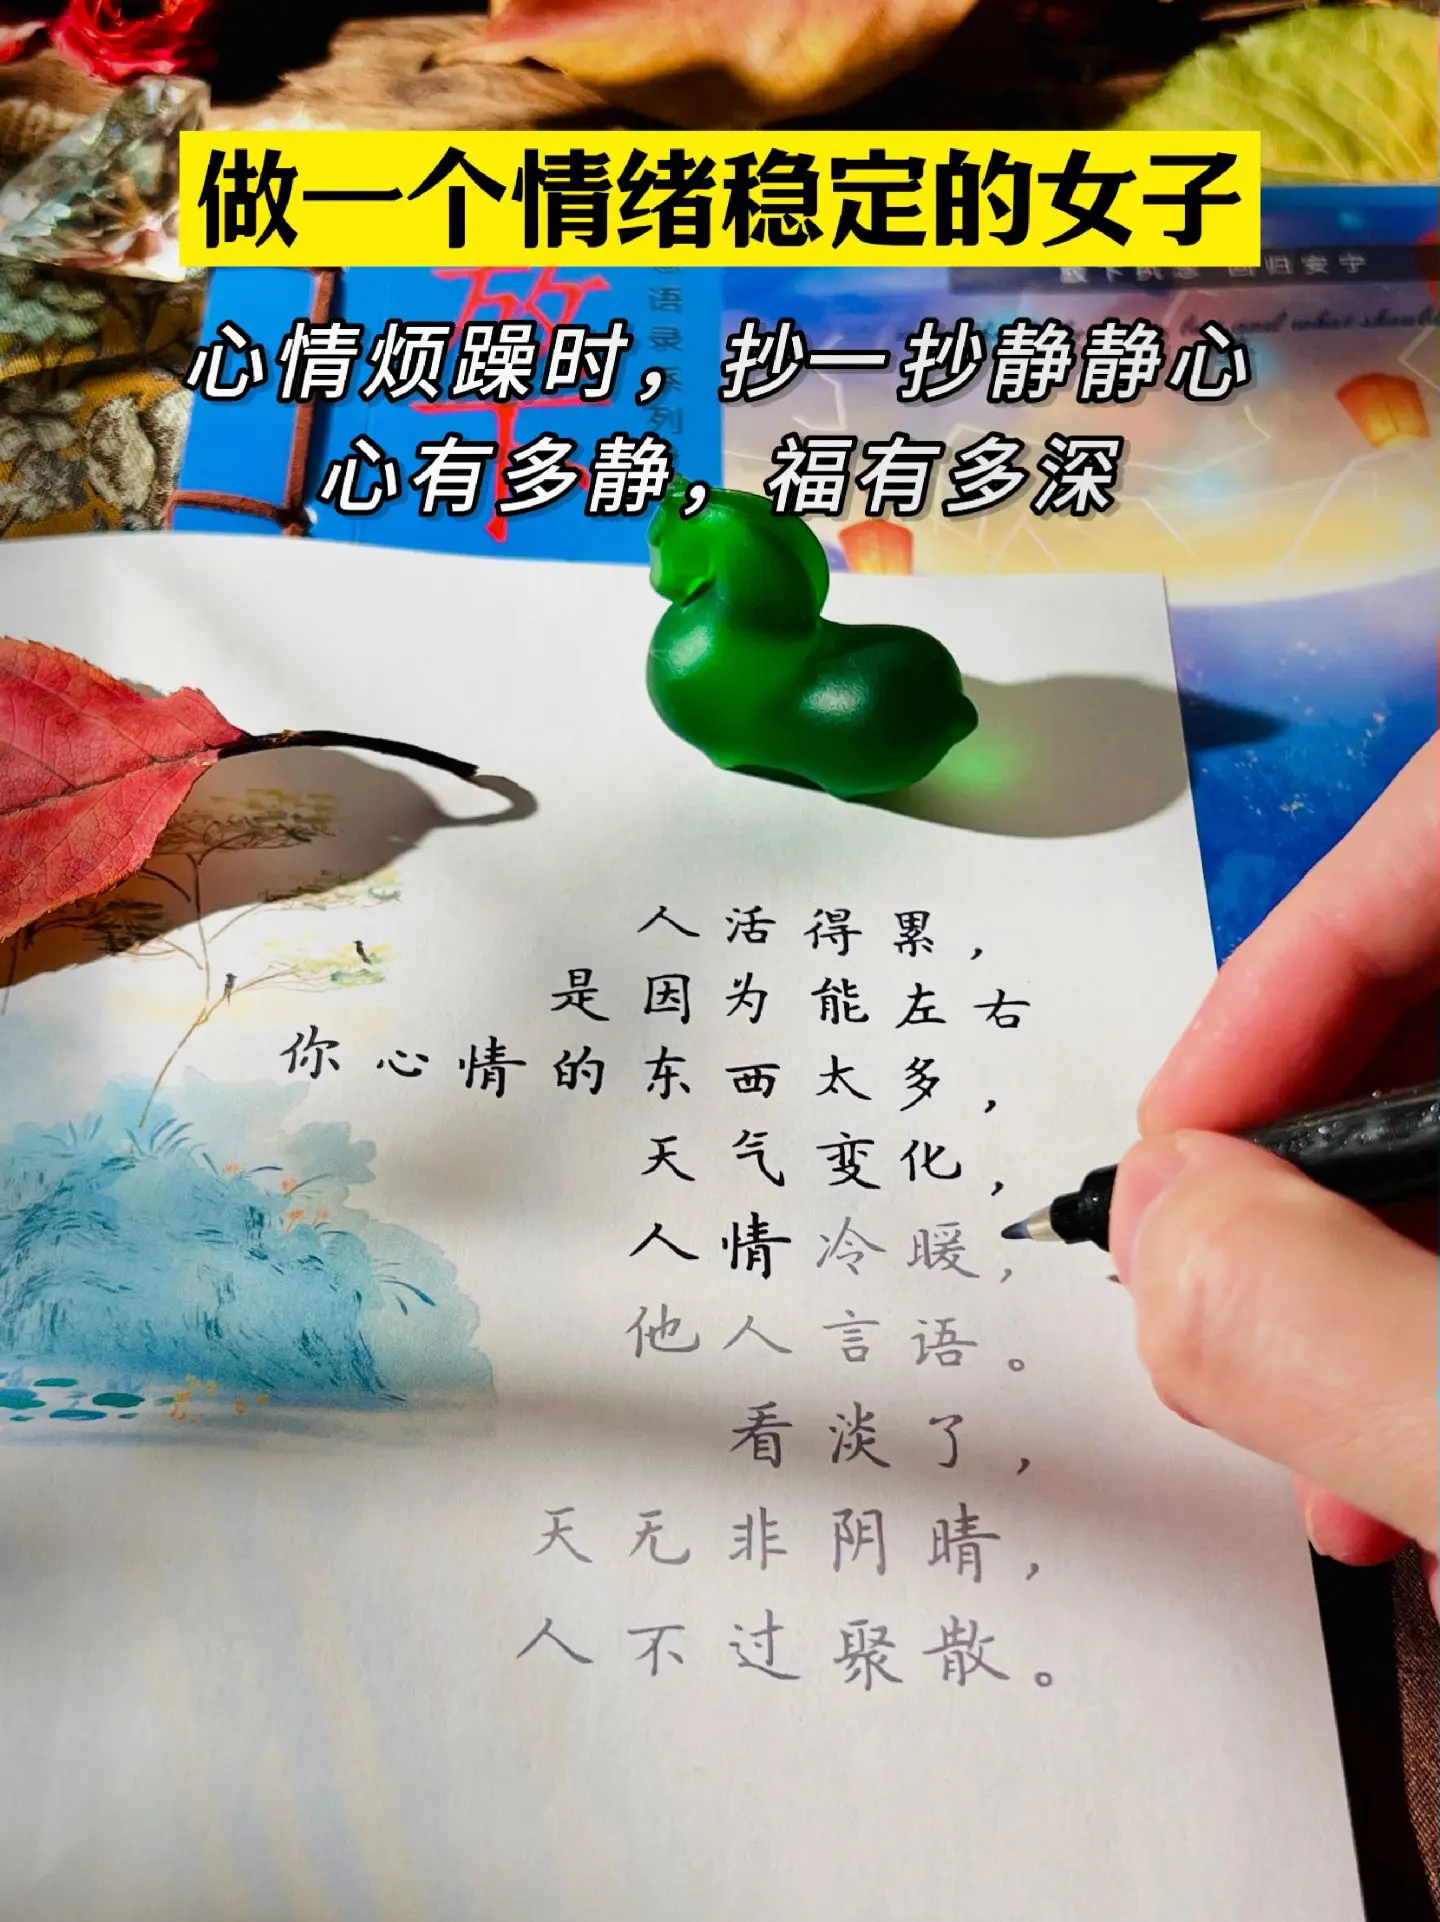 做一个情绪稳定的女子
心情烦躁时，抄一抄静静心
心有多静，福有多深
语录系列
人活得累，
是因为能左右
你心情的东西太多，
天气变化，
人情冷暖，
他人言语。
看淡了，
天无非阴晴，
人不过聚散。